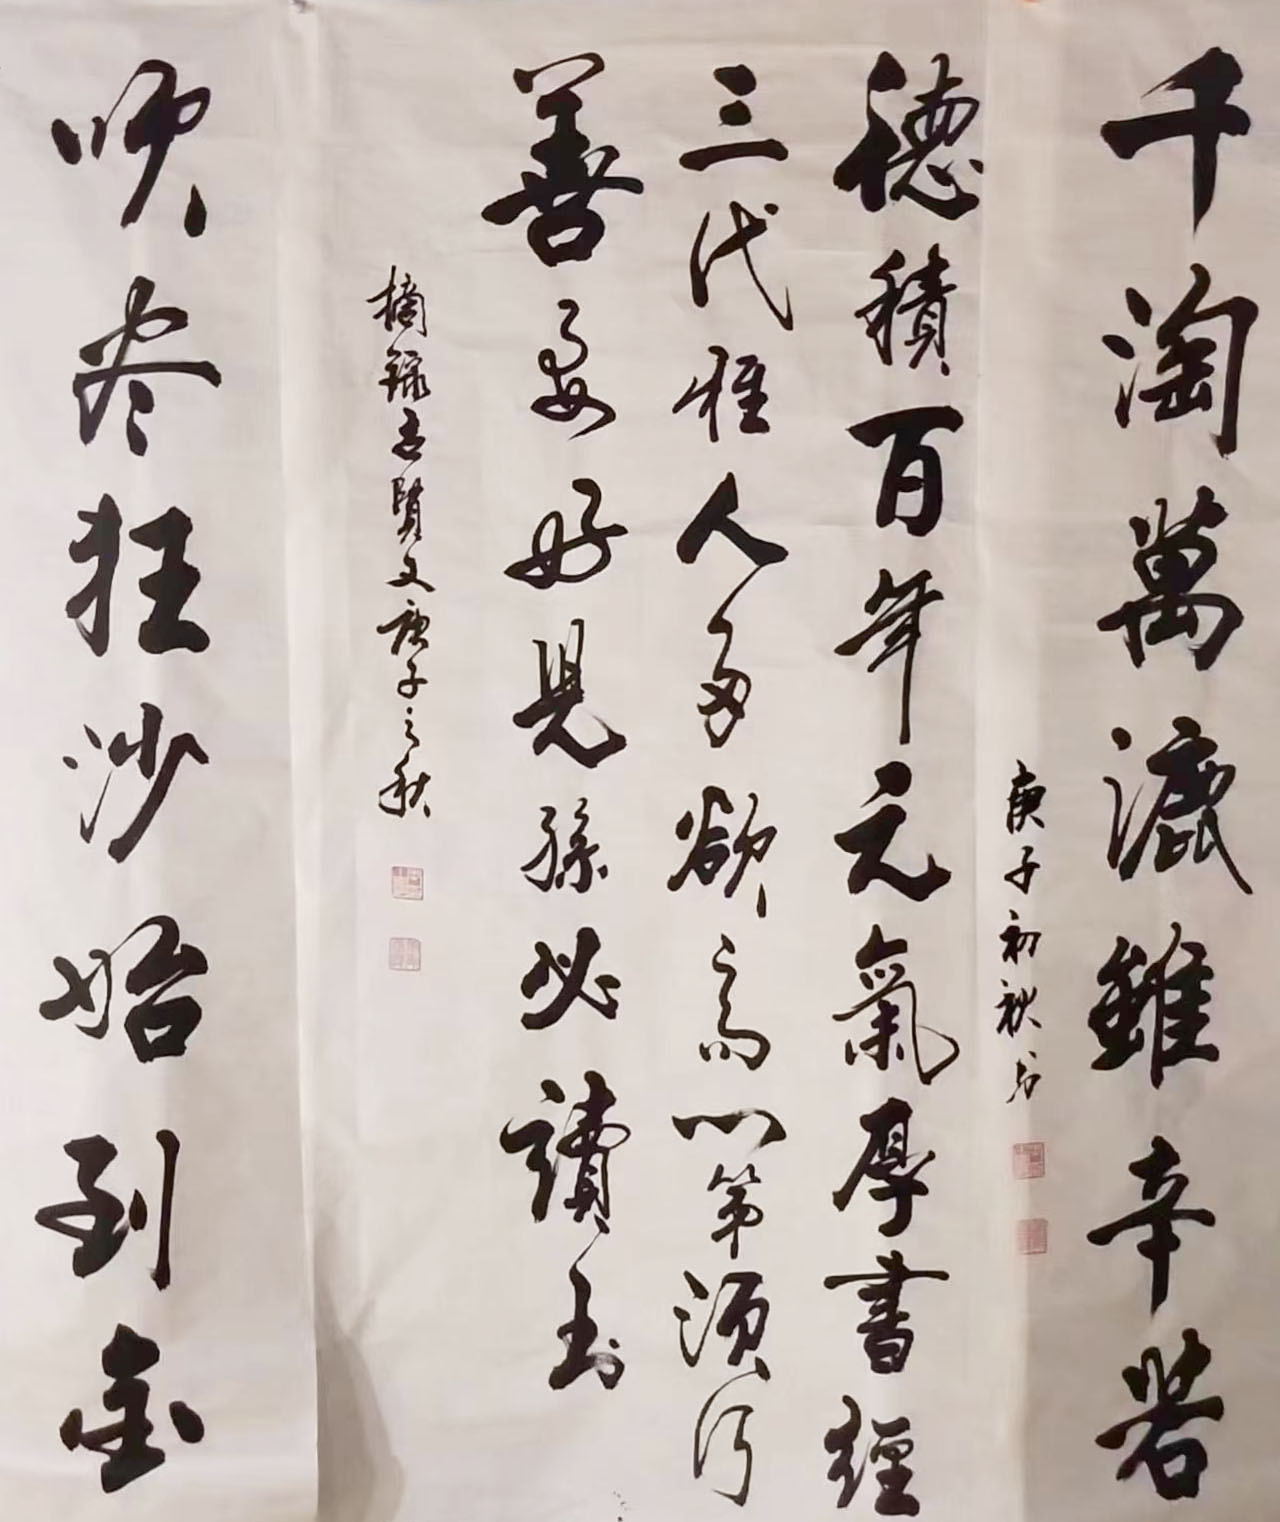 千淘萬漉雖辛苦
庚子初秋书
德積百年元氣厚書經
三代雅人多欲高門第須行
善要好兒孫必讀书
摘錄古賢文庚子之秋
吹尽狂沙始到金